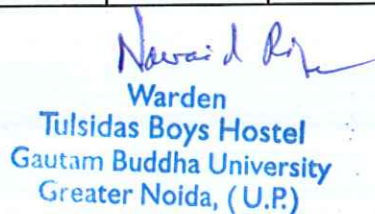 Warden
Tulsidas Boys Hostel
Gautam Buddha University
Greater Noida, (U.P.)